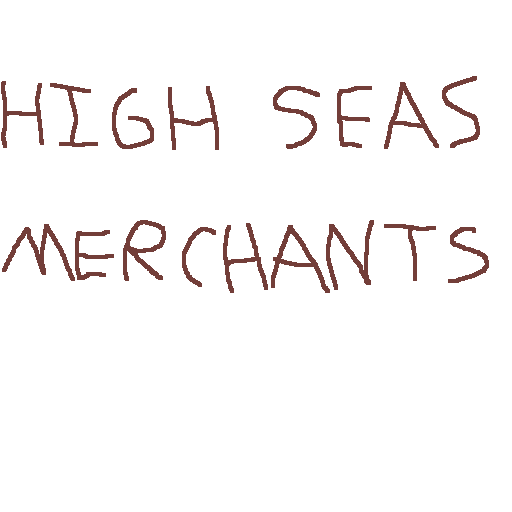 HIGH SEAS
MERCHANTS